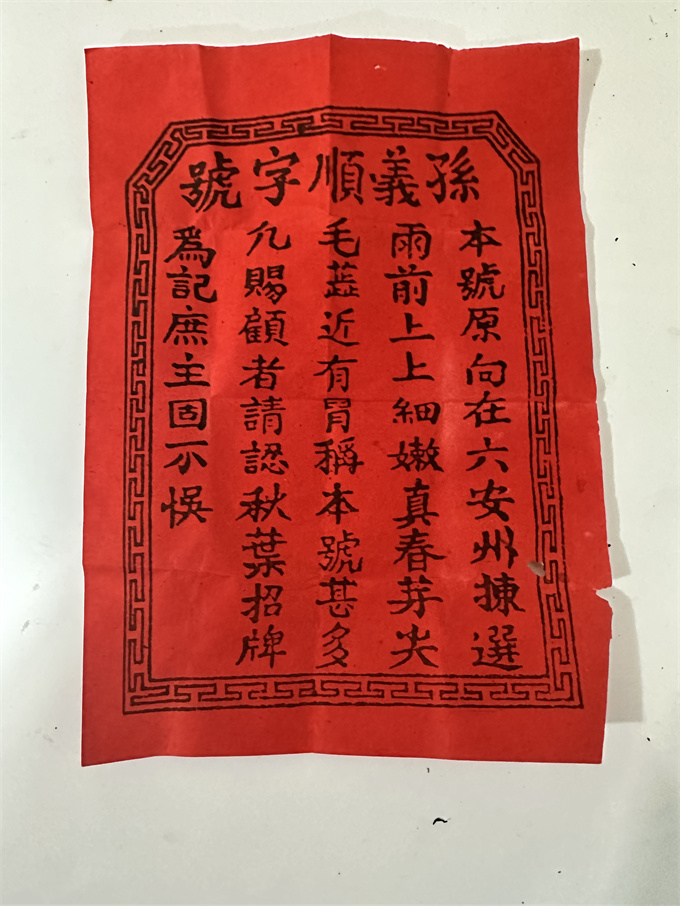 孫義順字號
本號原向在六安州揀選
雨前上上細嫩真春芽尖
毛蓝近有冐稱本號甚多
凣賜顧者請認秋葉招牌
爲記庶主固不悮